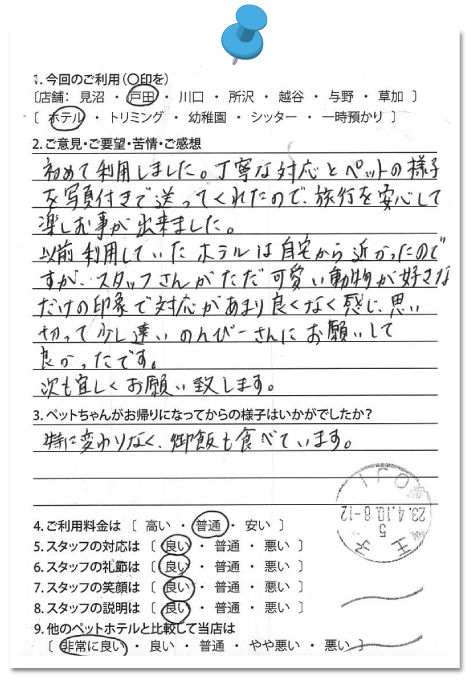 1. 今回のご利用(〇印を)
〔店舗: 見沼 ・ 戸田 ・ 川口 ・ 所沢 ・ 越谷 ・ 与野 ・ 草加 〕
〔 ホテル ・ トリミング ・ 幼稚園 ・ シッター ・ 一時預かり 〕
2. ご意見・ご要望・苦情・ご感想
初めて利用しました。丁寧な対応とペットの様子
を写真付きで送ってくれたので、旅行を安心して
楽しむ事が出来ました。
以前利用していたホテルは自宅から近かったので
すが、スタッフさんがただ可愛い動物が好きな
だけの印象で対応があまり良くなく感じ、思い
切って少し遠い のんびーさんにお願いして
良かったです。
次も宜しくお願い致します。
3. ペットちゃんがお帰りになってからの様子はいかがでしたか?
特に変わりなく、御飯も食べています。
4. ご利用料金は 〔 高い ・ 普通 ・ 安い 〕
5. スタッフの対応は 〔 良い ・ 普通 ・ 悪い 〕
6. スタッフの礼節は 〔 良い ・ 普通 ・ 悪い 〕
7. スタッフの笑顔は 〔 良い ・ 普通 ・ 悪い 〕
8. スタッフの説明は 〔 良い ・ 普通 ・ 悪い 〕
9. 他のペットホテルと比較して当店は
〔 非常に良い ・ 良い ・ 普通 ・ やや悪い ・ 悪い 〕
23.4.10.8-12